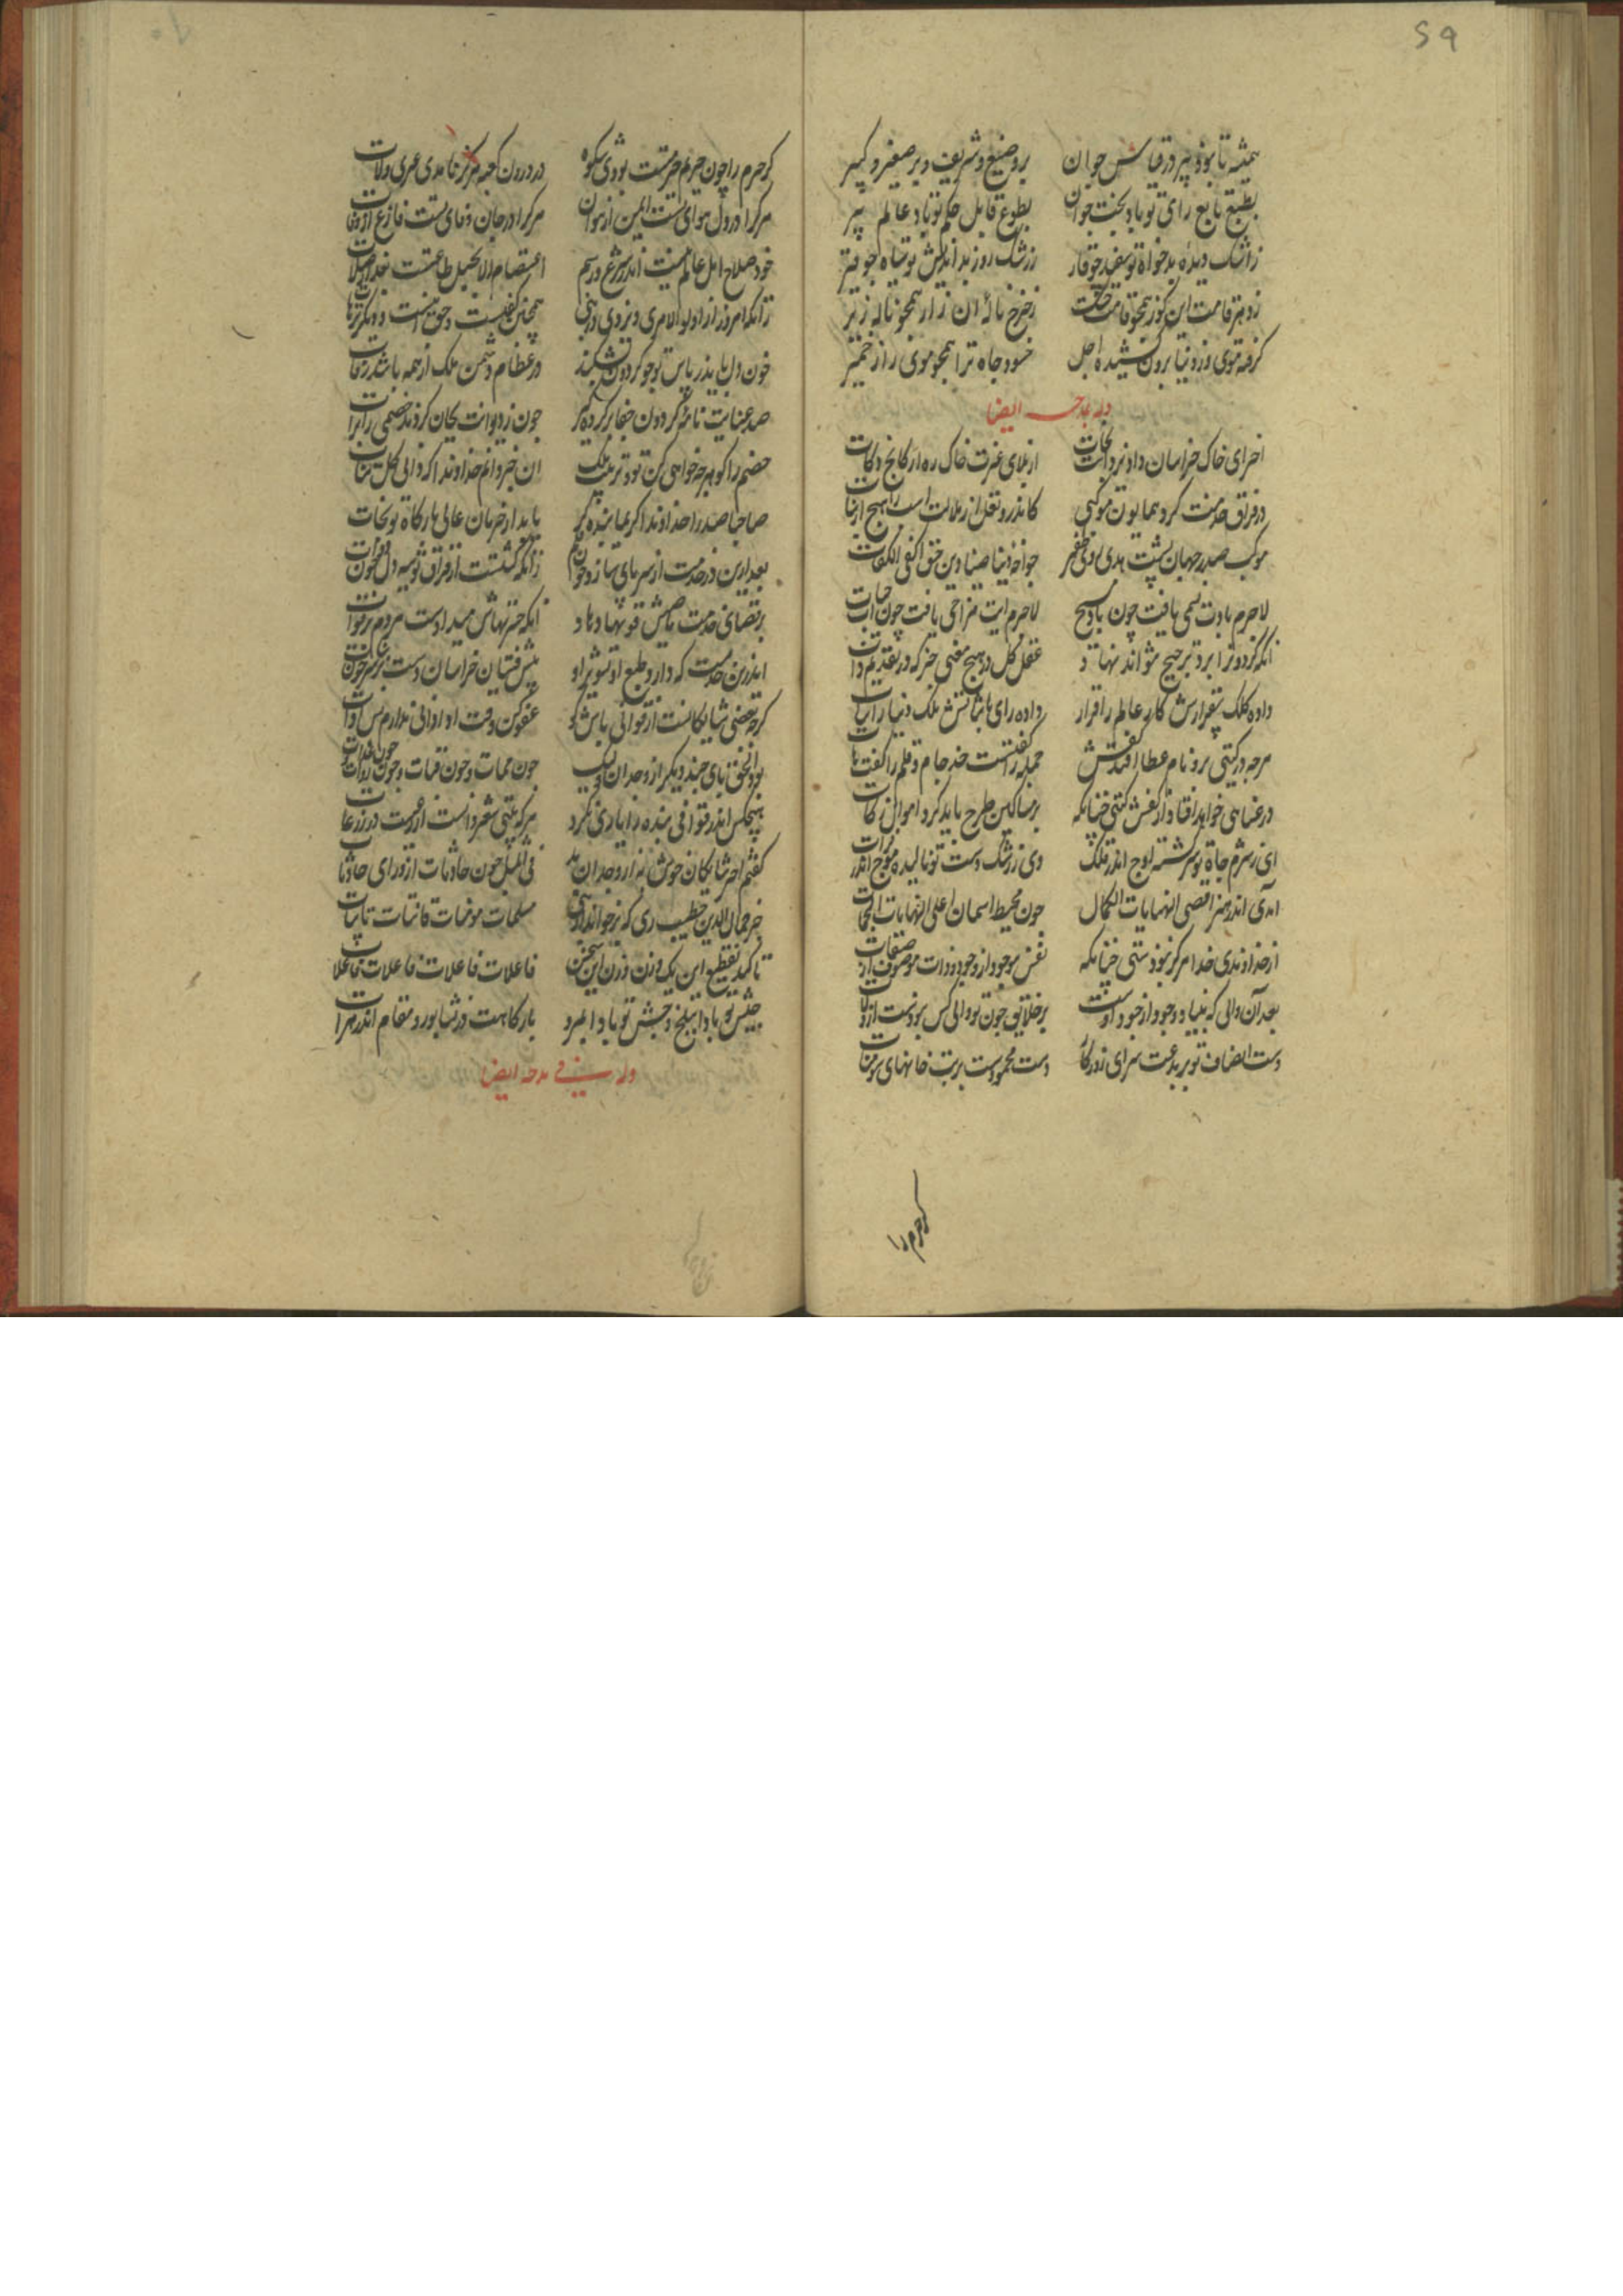 59
همیشه تا بود پیر در قیاس جوان بر وضیع و شریف و بر صغیر و کبیر
بطبع تابع رای تو باد بخت جوان بطوع قابل حکم تو باد عالم پیر
ز اشک دیده بدخواه تو سفید چو قار ز رشک روز بداندیش تو سیاه چو قیر
ز دهر قامت این کوز همچو قامت چنگ ز چرخ نالۀ آن زار همچو نالۀ زیر
گرفته موی و ز دنیا برون کشیده اجل حسود جاه ترا همچو موی را ز خمیر
وله یمدحه ایضا
اخر ای خاک خراسان داد یزدانت نجات از بلای غیرت خاک ره ارکانج و کات
در فراق خدمت گرد همایون موکبی کاندرو نعل از هلال است
موکب صدر جهان پشت هدی روی ظفر خواجه دنیا ضیا دین حق اکفی الکفات
لاجرم بادت نسیمی یافت چون باد مسیح لاجرم ابت مزاجی یافت چون آب حیات
انکه گردون را برو ترجیح نتواند نهاد عقل کل در هیچ معنی جز که در تقدیم ذات
داده کلک بیقرارش کار عالم را قرار داده رای با ثباتش ملک دنیا را ثبات
هرچه در گیتی برو نام عطا افتد کفش جمله گفتست خذ جام و قلم را گفت هات
در غنا می خواهد افتاد از کفش گیتی چنانکه بر مساکین طرح باید کرد اموال زکات
ای ز شرم جاه تو سرگشته اوج اندر فلک وی ز رشک دست تو نالیده موج اندر فرات
آمدی اندر هنر اقصی نهایات الکمال چون محیط اسمان اعلی النهایات الجهات
از خداوندی خدا هرگز نبودستی چنانکه نفس موجود از وجود و ذات موصوف از صفات
بعد آن والی که بنیاد وجود از جود اوست بر خلایق چون تو والی کس نبودست از ولات
دست انصاف تو بر بدعت سرای روزگار دست محمودست بر بتخانهای سومنات
کرحرم را
گر حرم را چون حریم حرمتت بودی شکوه در درون کعبه هرگز نامدی عزی و لات
هر کرا در دل هوای تست ایمن از هوان هر کرا در جان وفای تست فارغ از وفات
خود صلاح اهل عالم نیست اندر شرع و رسم اعتصام الا بحبل طاعتت بعد الصلات
زانکه امروز از اولو الامری و یزدی در نبی همچنین گفتست و حق اینست و دیگر ترهات
خون دل یابد ز باس تو چو گردون بشکند در عظام دشمن ملک از همه باشد رفات
صد عنایت نامۀ گردون جفا بر گردد گر چون ز دیوانت بجان کردند خصمی را برات
خصم را گو هرچه خواهی کن تو و ترتیب ملک آن خبر دانم خداوندا که والی کل ات
صاحبا صدرا خداوندا کریما بنده گر یابد از حرمان عالی بارگاه تو نجات
بعد ازین در خدمت از سر پای سازد چون قلم زانکه گشتست از فراق تو سیه دل چون دوات
بر تقاضای خدمت ماضیش قوتها دهاد انکه حسرتهاش میدادست مردم بر فوات
اندرین خدمت که دارد طبع او تشویر او پیش فتیان خراسان دست بر سر چون فتات
گرچه بعضی شایگانست از قوافی باش گو عفو کن وقت ادا دانی ندارم بس ادات
بود الحق تای چند دیگر از وجدان ولیک چون ممات و چون قنات و چون روات و چون عدات
هیچکس اندر قوافی بنده را یاری نکرد هر که بیتی شعر دانست از رعیت در رعات
گفتم اخر شایگان خوش نه از وجدان بد فی المثل چون حادثات از ورای حادثات
خیر جمال الدین خطیب ری که بر خواند از نبی مسلمات مومنات قانتات تائبات
تا کند تقطیع این یک وزن وزن این سخن فاعلات فاعلات فاعلات فاعلات
جیش تو بادا ببلخ و جشن تو بادا بمرو بارگاهت در نشابور و مقام اندر هرات
وله فی مدحه ایضا